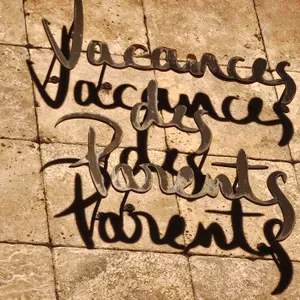 Vacances
des
Parents